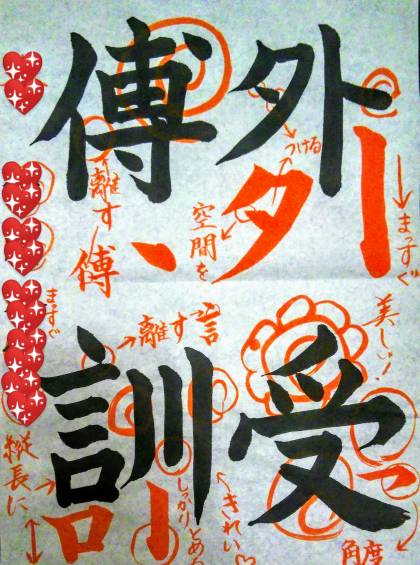 外受
傅訓
つける
まっすぐ
タ
空間を
離す
傅
美しい!
角度
離す
言
まっすぐ
きれい♡
しっかりとめる
縦長に
口